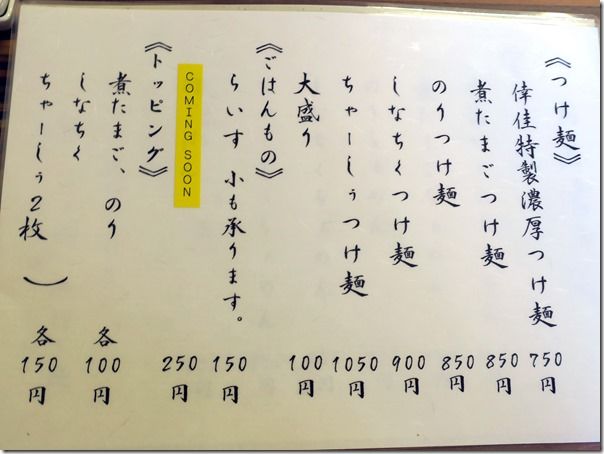 《つけ麺》
倖佳特製濃厚つけ麺 750円
煮たまごつけ麺 850円
のりつけ麺 850円
しなちくつけ麺 900円
ちゃーしぅつけ麺 1050円
大盛り 100円
《ごはんもの》
らいす 小も承ります。 150円
COMING SOON 250円
《トッピング》
煮たまご、のり 各100円
しなちく
ちゃーしぅ2枚 ) 各150円